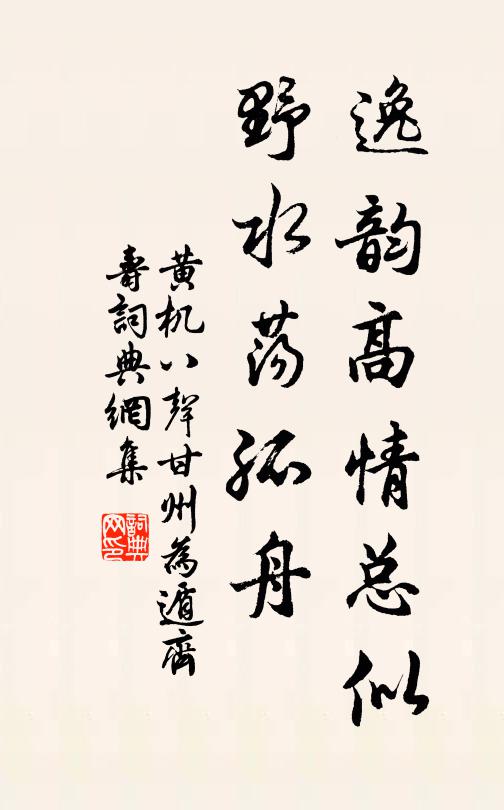 逸韵高情总似
野水荡孤舟
黄机八声甘州為遁齋
壽詞典網集
詞典网印